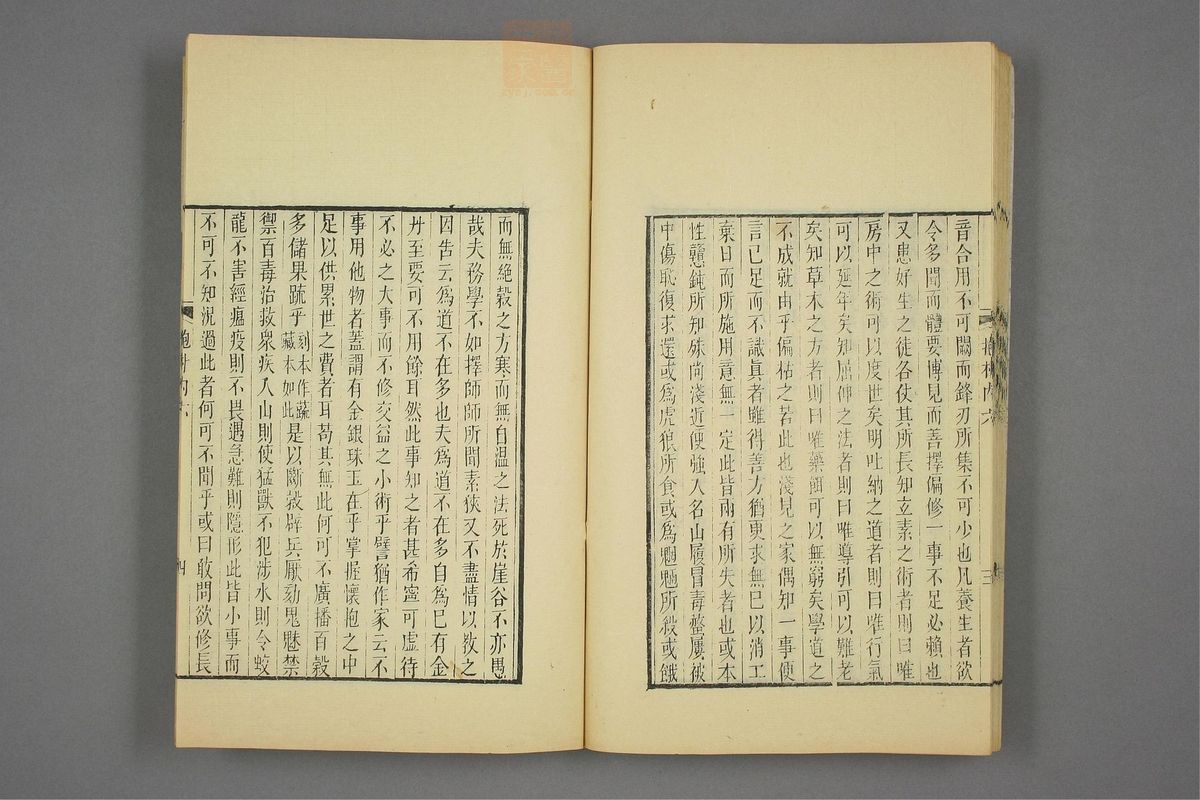 音合用不可闕而鋒刃所集不可少也凡養生者欲
令多聞而體要博見而善擇偏修一事不足必賴也
又患好生之徒各仗其所長知立素之術者則曰唯
房中之術可以度世矣明吐納之道者則曰唯行氣
可以延年矣知屈伸之法者則曰唯導引可以難老
矣知草木之方者則曰唯藥餌可以無窮矣學道之
不成就由乎偏枯之若此也淺見之家偶知一事便
言已足而不識眞者雖得善方猶更求無已以消工
棄日而所施用意無一定此皆兩有所失者也或本
性戇鈍所知殊尚淺近便強入名山履冒毒螫屢被
中傷恥復求還或爲虎狼所食或爲魍魎所殺或餓
三
而無絕穀之方寒而無自溫之法死於崖谷不亦愚
哉夫務學不如擇師師所聞素狹又不盡情以敎之
因告云爲道不在多也夫爲道不在多自爲已有金
丹至要可不用餘耳然此事知之者甚希寧可虛待
不必之大事而不修交益之小術乎譬猶作家云不
事用他物者蓋謂有金銀珠玉在乎掌握懷抱之中
足以供累世之費者耳苟其無此何可不廣播百穀
多儲果疏乎刻本作蔬藏本如此是以斷穀辟兵厭劾鬼魅禁
禦百毒治救衆疾入山則使猛獸不犯涉水則令蛟
龍不害經瘟疫則不畏遇急難則隱形此皆小事而
不可不知況過此者何可不聞乎或曰敢問欲修長
內六
四